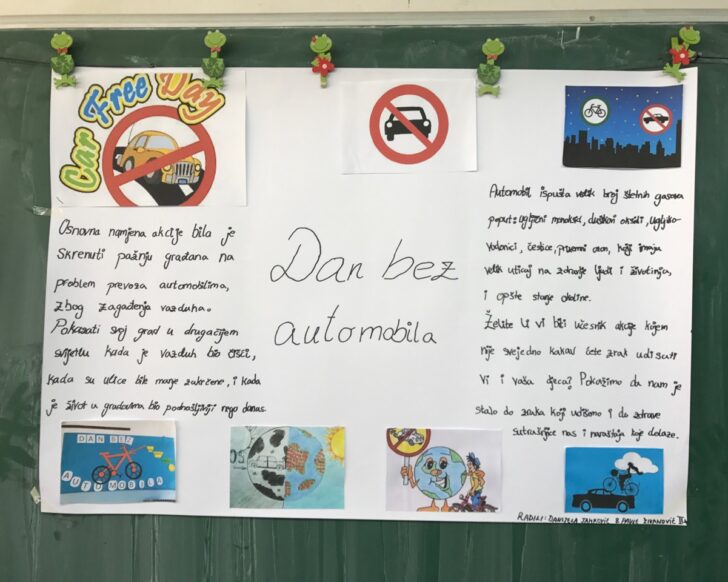 Car Free Day
Osnovna namjena akcije bila je
skrenuti pažnju građana na
problem prevoza automobilima,
zbog zagađenja vazduha.
Pokazati svoj grad u drugačijem
svijetlu kada je vazduh bio čisti,
kada su ulice bile manje zakrčene, i kada
je život u gradovima bio podnošljiviji nego danas.
Dan bez
automobila
Automobil ispušta velik broj štetnih gasova
poput: Ugljični monoksid, dušikovi oksidi, Ugljiko-
vodonici, čestice, prizemni ozon, koji imaju
velik uticaj na zdravlje ljudi i životinja,
i opšte stanje okoline.
Želite li vi biti učesnik akcije kojem
nije svejedno kakav ćete zrak udisati
vi i vaša djeca? Pokažimo da nam je
stalo do zraka koji udišemo i do zdrave
sutrašnjice nas i naraštaja koje dolaze.
DAN BEZ
AUTOMOBILA
OS
RADILI: DANIJELA JANKOVIĆ &